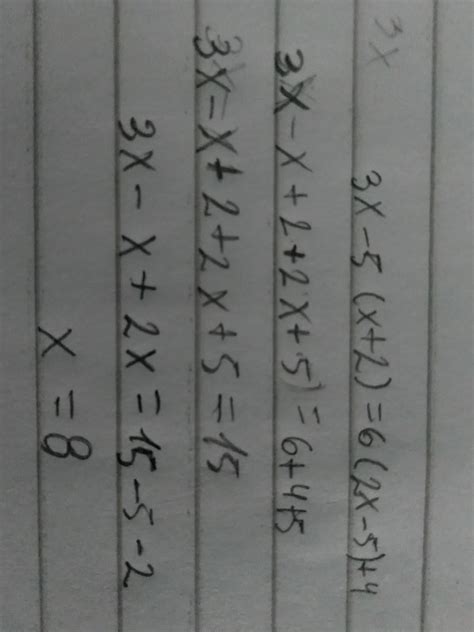 3x
3x-5(x+2)=6(2x-5)+4
3x-x+2+2x+5)=6+4+5
3x-x+2+2x+5=15
3x-x+2x=15-5-2
x=8